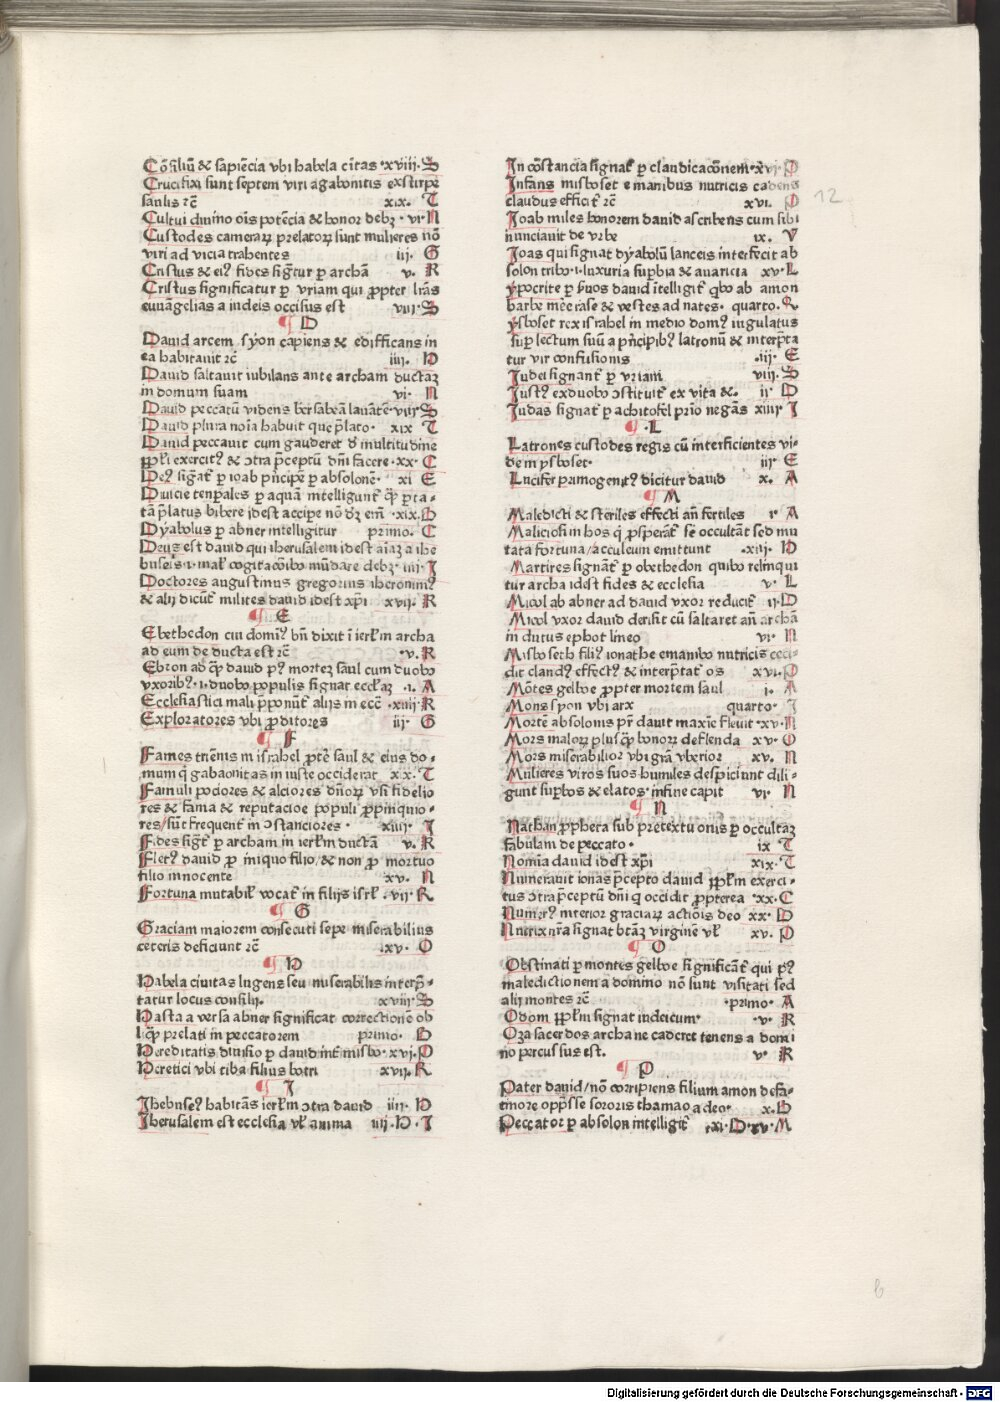 Cōsiliū & sapiēcia vbi habela cītas ·xviii· S
Crucifixi sunt septem viri agabonitis exstirpe
saulis ⁊c̄ xix. T
Cultui diuino oīs potēcia & honor debꝫ · vi· N
Custodes cameraꝝ prelatoꝝ sunt mulieres nō
viri ad vicia trahentes iij. G
Cristus & eiꝰ fides sigt̄ur ꝑ archā v. R
Cristus significatur ꝑ vriam qui ꝓpter lr̄as
euuāgelias a iudeis occisus est viij· S
¶ D
Dauid arcem syon capiens & edifficans in
ea habitauit ⁊c̄ iiij. H
Dauid saltauit iubilans ante archam ductaꝫ
in domum suam vi· N
Dauid peccatū videns bersabeā lauātē· viij S
Dauid plura noīa habuit que p̄lato· xix T
Dauid peccauit cum gauderet d̄ multitudine
ꝓp̄li exercitꝰ & ↄtra p̄ceptū dn̄i facere ·xx· C
Deꝰ sigāt̄ ꝑ ioab p̄ncipē ꝑ absolonē· xi E
Diuicie tenp̄ales ꝑ aquā intelligunt̄ q̄ꝫ ꝑta-
tā p̄latus bibere idest accipe nō dꝫ em̄ ·xix· D
Dyabolus ꝑ abner intelligitur primo. C
Deus est dauid qui iherusalem idest aīaꝫ a ihe
buseis ·i· mal̄ cogitacōibꝰ mūdare debꝫ· iiij· I
Doctores augustinus gregorius iheronimꝰ
& alij dicūt̄ milites dauid idest xp̄i xvij. R
¶ E
Ebethedon cui domīꝰ bn̄ dixit ī ierl̄m archa
ad eum de ducta est ⁊c̄ ·v. R
Ebron ad q̄ꝫ dauid pꝰ morteꝫ saul cum duobꝰ
vxoribꝰ ·i· duobꝰ populis signat eccl̄aꝫ .i. A
Ecclesiastici mali ꝓponūt̄ alijs in eccē ·xiiij· R
Exploratores vbi ꝓditores iij· G
¶ F
Fames triēnis in israhel ꝓtē saul & eius do-
mum q̄ gabaonitas in iuste occiderat xx. T
Famuli pociores & alciores dn̄oꝝ vsī fidelio
res & fama & reputacioe populi ꝓpinquio-
res/sūt frequent̄ in ↄstanciores· xiiij· I
Fides sigt̄ ꝑ archam in ierl̄m ductā v. R
Fletꝰ dauid ꝓ iniquo filio/& non ꝓ mortuo
filio innocente xv. N
Fortuna mutabil̄ vocat̄ in filijs isrl̄ ·vij· R
¶ G
Graciam maiorem consecuti sepe miserabilius
ceteris deficiunt ⁊c̄ xv· O
¶ H
Habela ciuitas lugens seu miserabilis interp̄-
tatur locus consilij. xviij· S
Hasta a versa abner significat correctionē ob
liq̄ꝫ prelati in peccatorem primo. B
Hereditatis diuisio ꝑ dauid int̄ misbo· xvj. P
Heretici vbi tiba filius botri xvij. R
¶ I
Ihebuseꝰ habitās ierl̄m ↄtra dauid iiij· H
Iherusalem est ecclesia vl̄ anima iiij· H· I
In cōstancia signat̄ ꝑ claudicacōnem· xvj· P
Infans misboset e manibus nutricis cadens
claudus efficit̄ ⁊c̄ xvi. P
Ioab miles honorem dauid ascribens cum sibi
nunciauit de vrbe ix. V
Ioas qui signat dyabolū lanceis interfecit ab
solon tribꝰ ·i· luxuria sup̄bia & auaricia xv· L
ypocrite ꝑ s̄uos dauid ītelligit̄ q̄bꝰ ab amon
barbe mēe rase & vestes ad nates· quarto. R
ysboset rex israhel in medio domꝰ iugulatus
sup̄ lectum suū a p̄ncipibꝰ latronū & interp̄ta
tur vir confusionis .iij· E
Iudei signant̄ ꝑ vriam viij. S
Iustꝰ ex duobꝰ ↄstituit̄ ex vita &. ij D
Iudas signat̄ ꝑ achitofel prīo negās xiiij· I
¶ ·L
Latrones custodes regis cū interficientes vi-
dem ysboset· iij· E
Lucifer pamogenitꝰ dicitur dauid x. A
¶ M
Maledicti & steriles effecti an̄ fertiles i· A
Maliciosi in hos q̄ ꝓsperāt̄ se occultāt sed mu
tata fortuna/acculeum emittunt ·xiij· H
Martires signāt̄ ꝑ obethedon quibꝰ relinqui
tur archa idest fides & ecclesia v· L
Micol ab abner ad dauid vxor reducit̄ ij D
Micol vxor dauid derisit cū saltaret an̄ archā
in dutus ephot lineo vi· N
Misboseth filiꝰ ionathe emanibꝰ nutricis ceci-
dit claudꝰ effectꝰ & interp̄tat̄ os xvi. P
Mōtes gelboe ꝓpter mortem saul i. A
Mons syon vbi arx quarto· I
Mortē absolonis pr̄ dauit maxīe fleuit ·xv· N
Mors maloꝝ plus q̄ꝫ bonoꝝ deflenda xv· O
Mors miserabilior vbi grā vberior xv. N
Mulieres viros suos humiles despiciunt dili-
gunt sup̄bos & elatos· in fine capit vi· N
¶ N
Nathan ꝓpheta sub p̄textu onis ꝑ occultaꝫ
fabulam de peccato· ix T
Nomīa dauid idest xp̄i xix. T
Numerauit ionas p̄cepto dauid ꝓp̄lm exerci-
tus ↄtra p̄ceptū dn̄i q̄ occidit ꝓpterea ·xx· C
Numerꝰ interior graciaꝝ actiōis deo xx· D
Nutrix nr̄a signat btāꝫ virginē vl̄ xv. P
¶ O
Obstinati ꝑ montes gelboe significāt̄ qui pꝰ
maledictionem a domino nō sunt visitati sed
alij montes ⁊c̄ ·primo· A
Odom ꝓp̄lm signat iudeicum· ·v· R
Oza sacerdos archa ne caderet tenens a domi
no percussus est. v· R
¶ P
Pater dauid/nō corripiens filium amon defa-
tmore opp̄sse sororis thamar a deo· x. B
Peccator ꝑ absolon intelligit̄ xi· D· xv· M
12
b
Digitalisierung gefördert durch die Deutsche Forschungsgemeinschaft - DFG